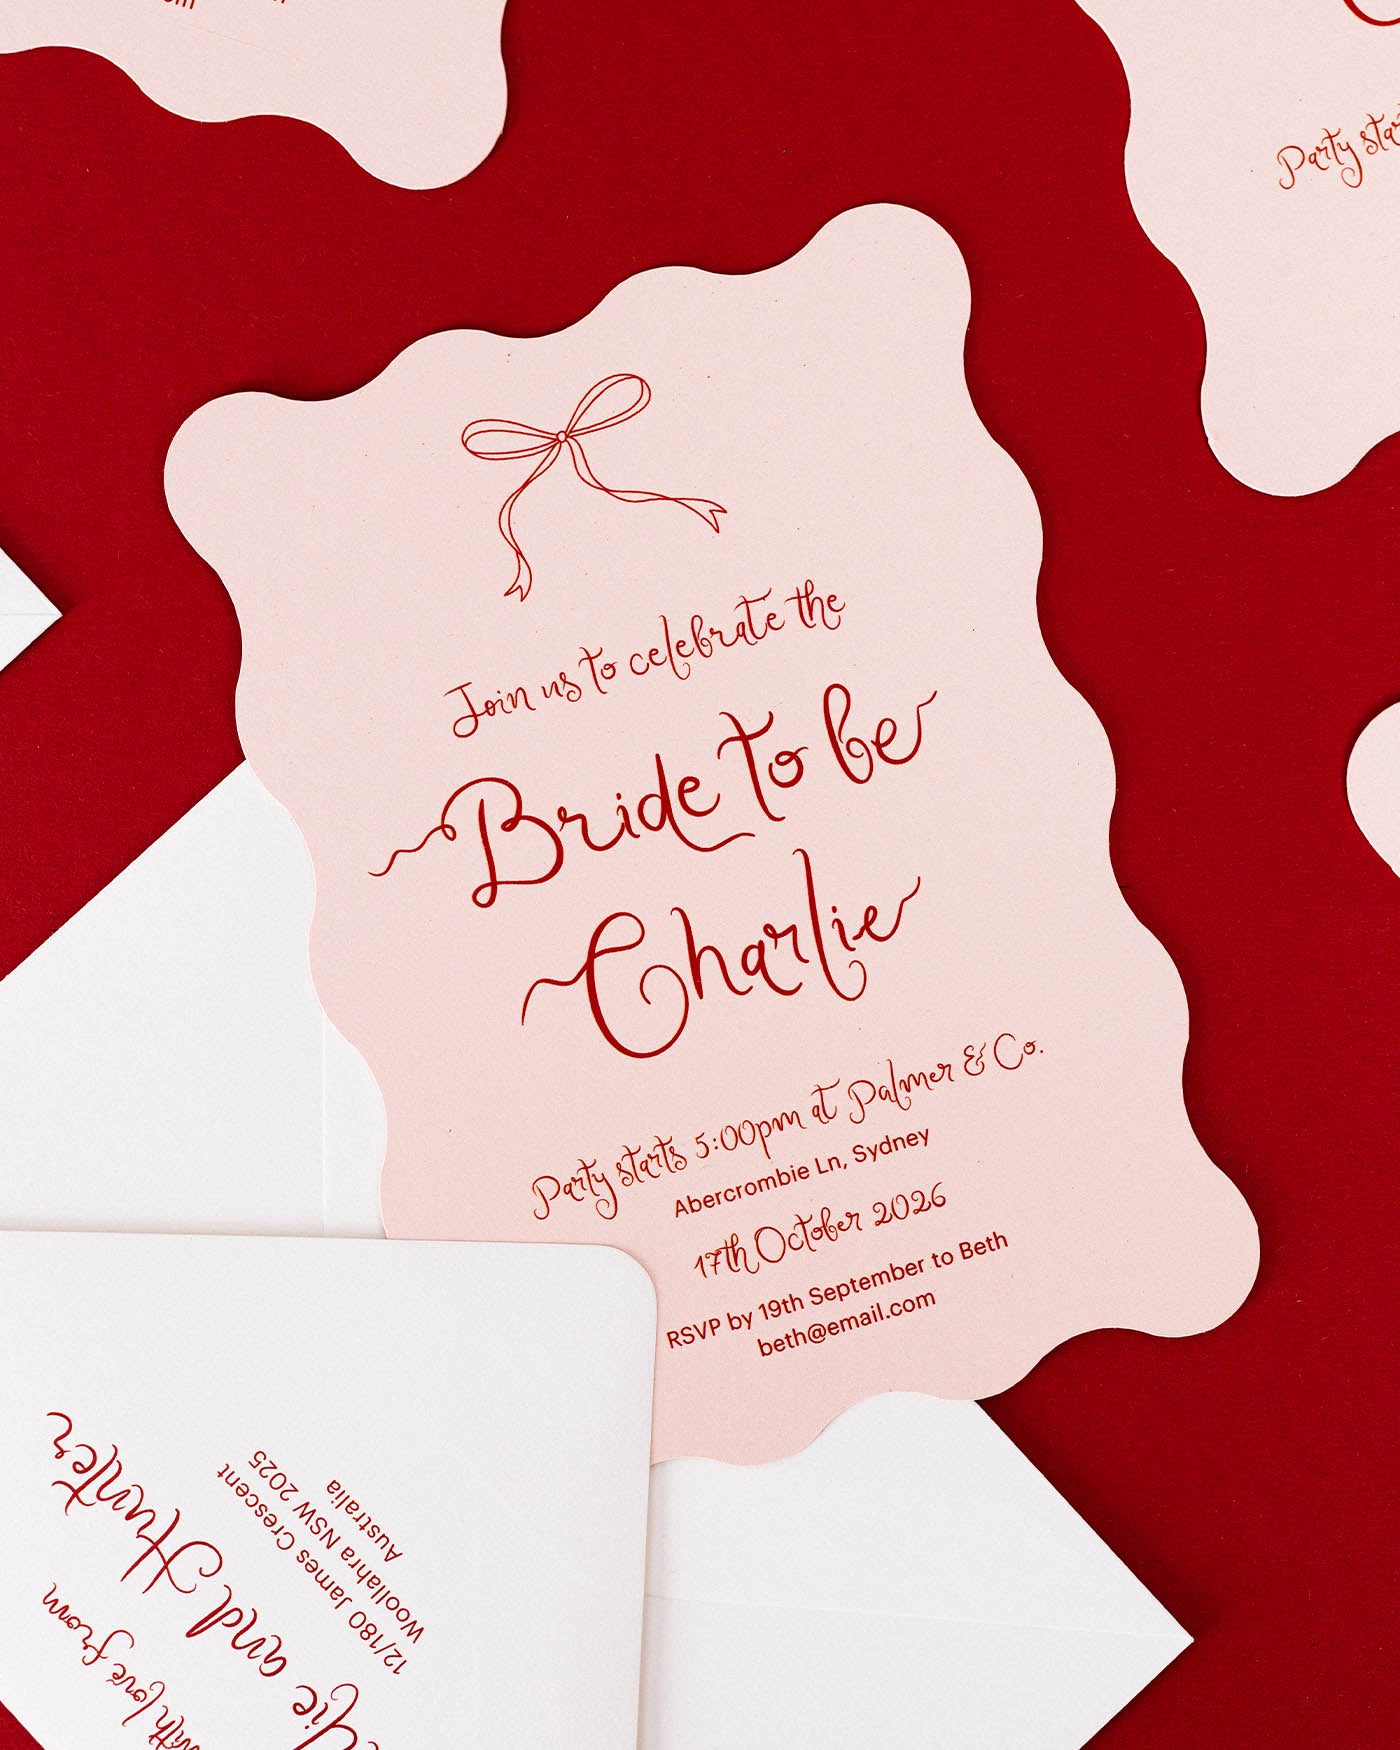 Join us to celebrate the
Bride to be
Charlie
Party starts 5:00pm at Palmer & Co.
Abercrombie Ln, Sydney
17th October 2026
RSVP by 19th September to Beth
beth@email.com
Party
with love from
and Hunter
12/180 James Crescent
Woollahra NSW 2025
Australia